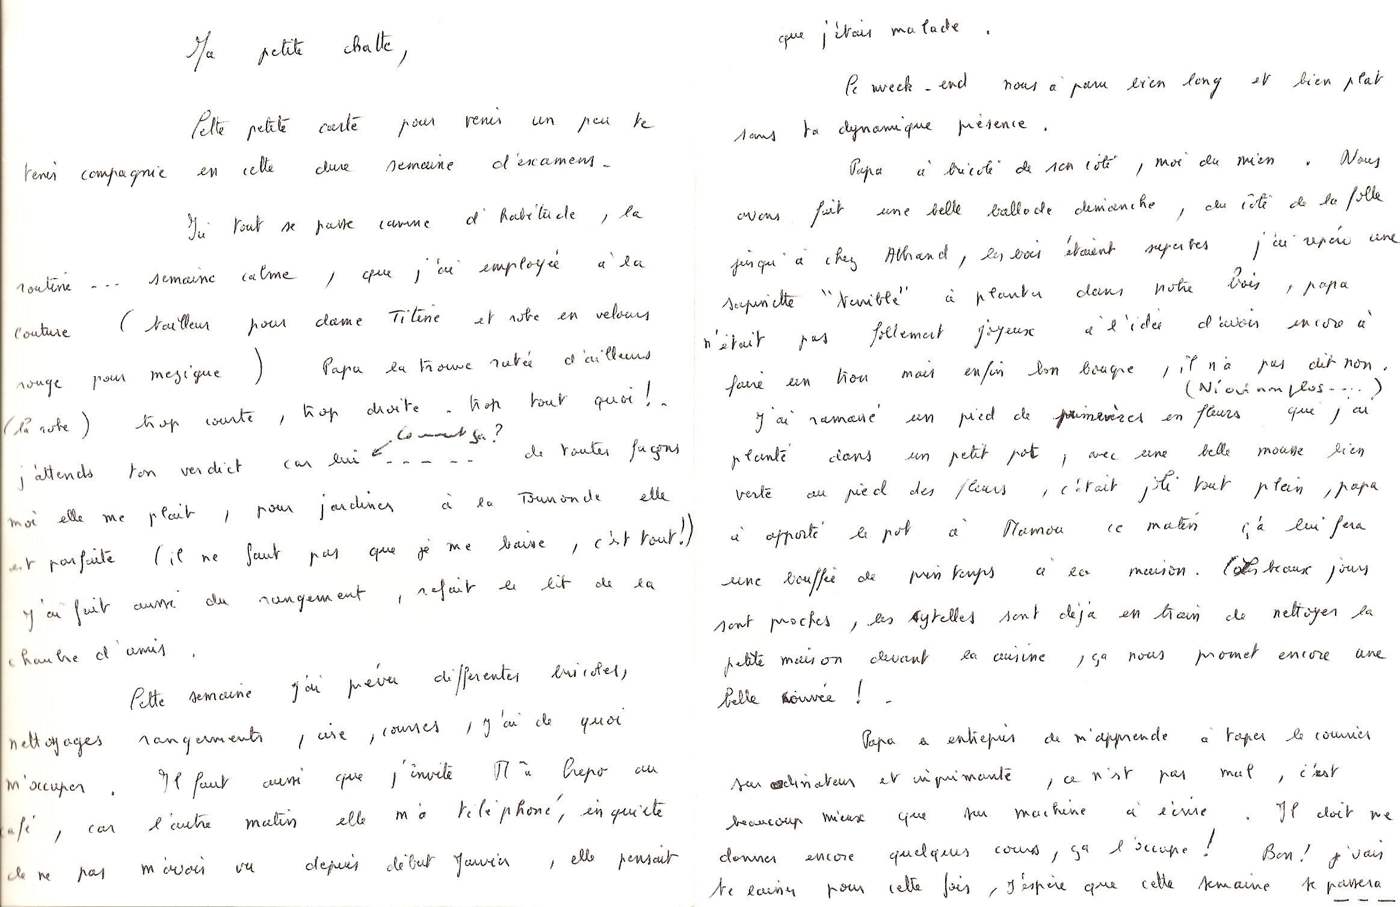 Ma petite chatte,
Cette petite carte pour venir un peu te
tenir compagnie en cette dure semaine d'examens -
Ici tout se passe comme d'habitude, la
routine --- semaine calme, que j'ai employée à la
couture (tailleur pour dame Titine et robe en velours
rouge pour mezigue) Papa la trouve ratée d'ailleurs
(la robe) trop courte, trop droite - trop tout quoi! -
Comment ça?
j'attends ton verdict car lui ----- de toutes façons
moi elle me plait, pour jardiner à la elle
est parfaite (il ne faut pas que je me baisse, c'est tout!)
J'ai fait aussi du rangement, refait le lit de la
chambre d'amis.
Cette semaine j'ai prévu differentes bricoles,
nettoyages rangements, cire, courses, j'ai de quoi
m'occuper. Il faut aussi que j'invite au
café, car l'autre matin elle m'a téléphoné, inquiète
de ne pas m'avoir vu depuis début Janvier, elle pensait
que j'étais malade.
Ce week-end nous à paru bien long et bien plat
sans ta dynamique présence.
Papa à bricolé de son côté, moi du mien. Nous
avons fait une belle ballade dimanche, du côté de la folle
jusqu'à chez, les bois étaient superbes j'ai repéré une
sapinette "terrible" à planter dans notre bois, papa
n'était pas follement joyeux à l'idée d'avoir encore à
faire un trou mais enfin bon bougre, il n'a pas dit non.
(Ni oui non plus ----)
J'ai ramassé un pied de primevères en fleurs que j'ai
planté dans un petit pot, avec une belle mousse bien
verte au pied des fleurs, c'était joli tout plein, papa
à apporté le pot à Mamou ce matin çà lui fera
une bouffée de printemps à la maison. Les beaux jours
sont proches, les sytelles sont déjà en train de nettoyer la
petite maison devant la cuisine, ça nous promet encore une
belle couvée! -
Papa a entrepris de m'apprendre à taper le courrier
sur ordinateur et imprimante, ce n'est pas mal, c'est
beaucoup mieux que sur machine à écrire. Il doit me
donner encore quelques cours, ça l'occupe! Bon! j'vais
te laisser pour cette fois, j'espère que cette semaine se passera